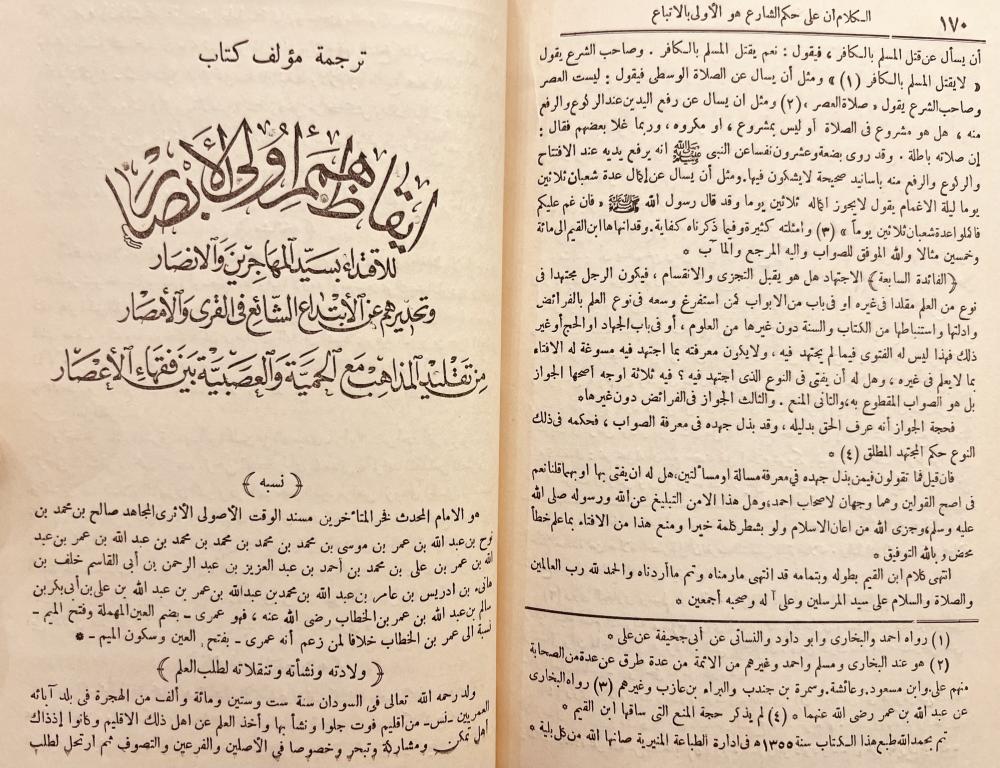 ١٧٠
الكلام ان على حكم الشارع هو الأولى بالاتباع
أن يسأل عن قتل المسلم بالكافر ، فيقول : نعم يقتل المسلم بالكافر . وصاحب الشرع يقول
« لا يقتل المسلم بالكافر (١) » ومثل أن يسأل عن الصلاة الوسطى فيقول : ليست العصر
وصاحب الشرع يقول « صلاة العصر ، (٢) ومثل ان يسأل عن رفع اليدين عند الركوع والرفع
منه ، هل هو مشروع فى الصلاة أو ليس بمشروع ، او مكروه ، وربما غلا بعضهم فقال :
إن صلاته باطلة . وقد روى بضعة وعشرون نفسا عن النبى ﷺ انه يرفع يديه عند الافتتاح
والركوع والرفع منه باسانيد صحيحة لا يشكون فيها. ومثل أن يسأل عن إكمال عدة شعبان ثلاثين
يوما ليلة الاغمام يقول لا يجوز اكماله ثلاثين يوما وقد قال رسول الله ﷺ « فان غم عليكم
فاكملوا عدة شعبان ثلاثين يوماً » (٣) وامثلته كثيرة وفيما ذكرناه كفاية. وقد انهاها ابن القيم الى مائة
وخمسين مثالا والله الموفق للصواب واليه المرجع والمآب *
﴿ الفائدة السابعة ﴾ الاجتهاد هل هو يقبل التجزى والانقسام ، فيكون الرجل مجتهدا فى
نوع من العلم مقلدا فى غيره او فى باب من الابواب كمن استفرغ وسعه فى نوع العلم بالفرائض
وادلتها واستنباطها من الكتاب والسنة دون غيرها من العلوم ، أو فى باب الجهاد او الحج أو غير
ذلك فهذا ليس له الفتوى فيما لم يجتهد فيه ، ولا يكون معرفته بما اجتهد فيه مسوغة له الافتاء
بما لا يعلم فى غيره ، وهل له أن يفتى فى النوع الذى اجتهد فيه ؟ فيه ثلاثة اوجه أصحها الجواز
بل هو الصواب المقطوع به، والثانى المنع . والثالث الجواز فى الفرائض دون غيرها*
فحجة الجواز أنه عرف الحق بدليله ، وقد بذل جهده فى معرفة الصواب ، فحكمه فى ذلك
النوع حكم المجتهد المطلق (٤) *
فان قيل فما تقولون فيمن بذل جهده فى معرفة مسألة او مسألتين، هل له ان يفتى بها او بهما قلنا نعم
فى اصح القولين وهما وجهان لاصحاب احمد، وهل هذا الا من التبليغ عن الله ورسوله صلى الله
عليه وسلم، وجزى الله من اعان الاسلام ولو بشطر كلمة خيرا ومنع هذا من الافتاء بما علم خطأ
محض وبالله التوفيق *
انتهى كلام ابن القيم بطوله وبتمامه قد انتهى مارمناه وتم ما أردناه والحمد لله رب العالمين
والصلاة والسلام على سيد المرسلين وعلى آله وصحبه أجمعين *
(١) رواه احمد والبخارى وابو داود والنسائى عن أبى جحيفة عن على *
(٢) هو عند البخارى ومسلم واحمد وغيرهم من الائمة من عدة طرق عن عدة من الصحابة
منهم على وابن مسعود. وعائشة. وسمرة بن جندب والبراء بن عازب وغيرهم (٣) رواه البخارى
عن عبد الله بن عمر رضى الله عنهما * (٤) لم يذكر حجة المنع التى ساقها ابن القيم *
تم بحمد الله طبع هذا الكتاب سنة ١٣٥٥ ه فى ادارة الطباعة المنيرية صانها الله من كل بلية *
ترجمة مؤلف كتاب
إيقاظ همم أولى الأبصار
للاقتداء بسيد المهاجرين والانصار
وتحذيرهم عن الابتداع الشائع فى القرى والأمصار
من تقليد المذاهب مع الحمية والعصبية بين فقهاء الأعصار
﴿ نسبه ﴾
هو الامام المحدث فخر المتأخرين مسند الوقت الأصولى الأثرى المجاهد صالح بن محمد بن
نوح بن عبد الله بن عمر بن موسى بن محمد بن محمد بن محمد بن محمد بن عبد الله بن عمر بن عبد
الله بن عمر بن على بن محمد بن أحمد بن عبد العزيز بن عبد الرحمن بن أبى القاسم خلف بن
هانىء بن ادريس بن عامر بن عبد الله بن محمد بن عبدالله بن عمر بن عبد الله بن على بن أبى بكر بن
سالم بن عبد الله بن عمر بن الخطاب رضى الله عنه ، فهو عمرى ـ بضم العين المهملة وفتح الميم ـ
نسبة الى عمر بن الخطاب خلافا لمن زعم أنه عمرى ـ بفتح العين وسكون الميم ـ *
﴿ ولادته ونشأته وتنقلاته لطلب العلم ﴾
ولد رحمه الله تعالى فى السودان سنة ست وستين ومائة وألف من الهجرة فى بلد آبائه
العمريين ـ نس ـ من إقليم فوت جلوا ونشأ بها وأخذ العلم عن اهل ذلك الاقليم وكانوا إذذاك
أهل تمكن ومشاركة وتبحر وخصوصا فى الأصلين والفرعين والتصوف ثم ارتحل لطلب